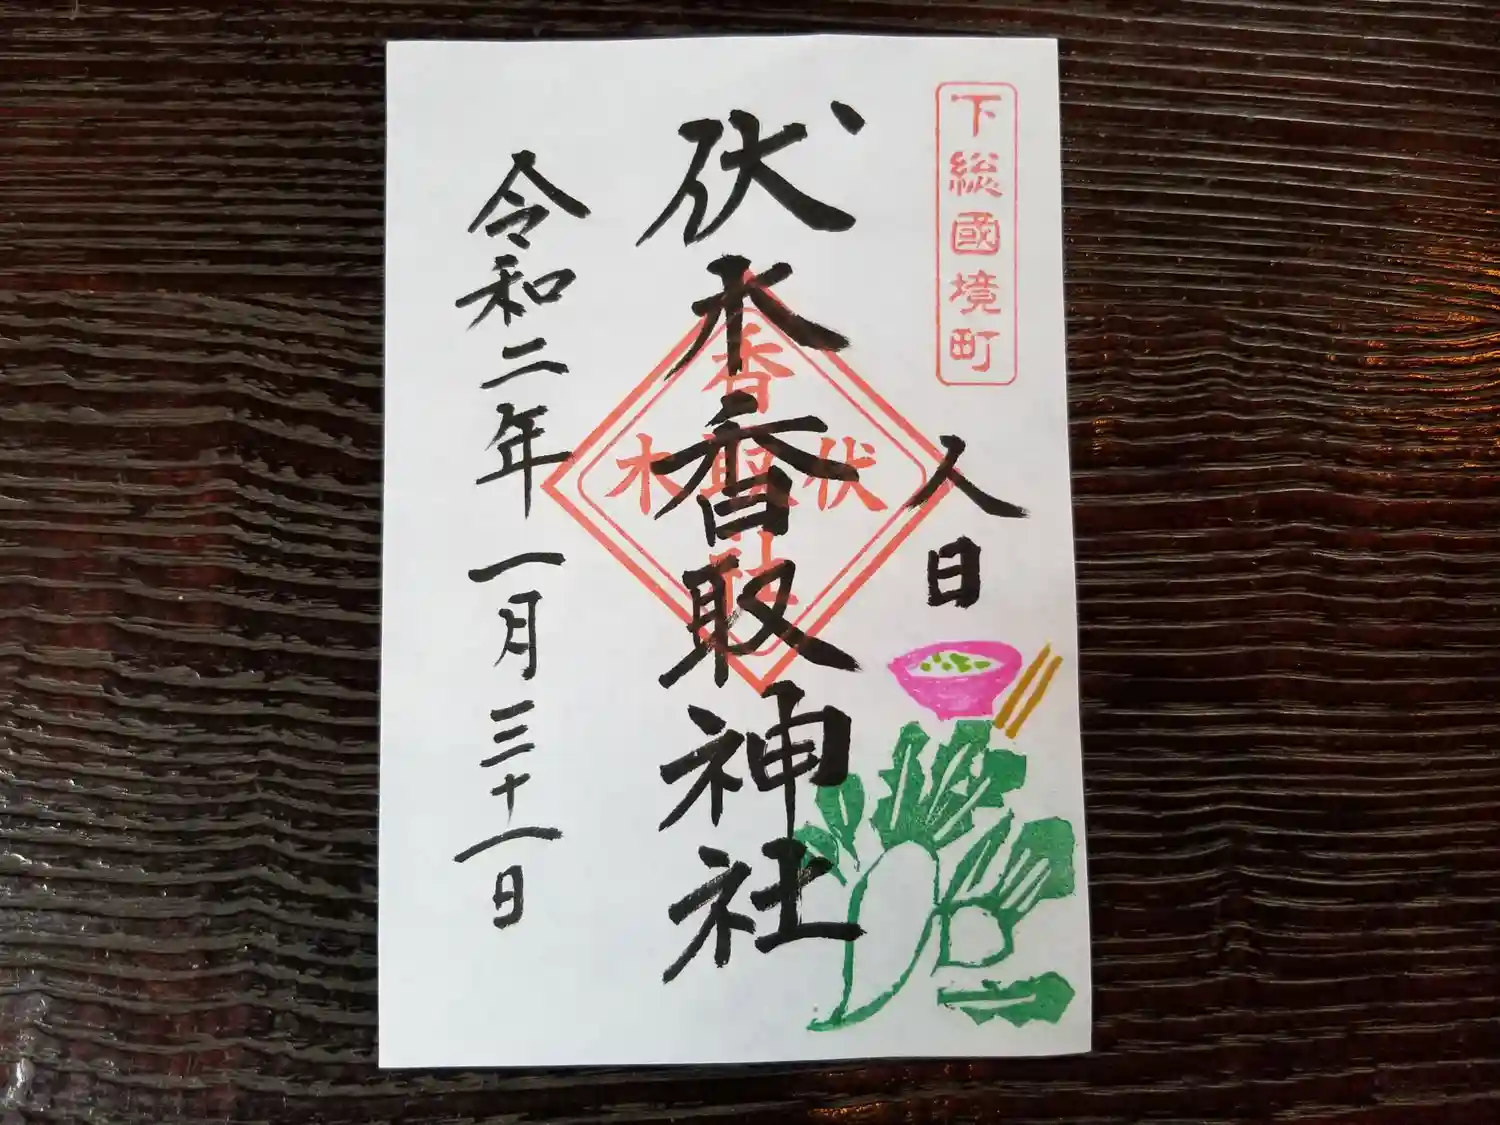 下総國境町
人日
伏木香取神社
伏木
香取社
令和二年一月三十一日